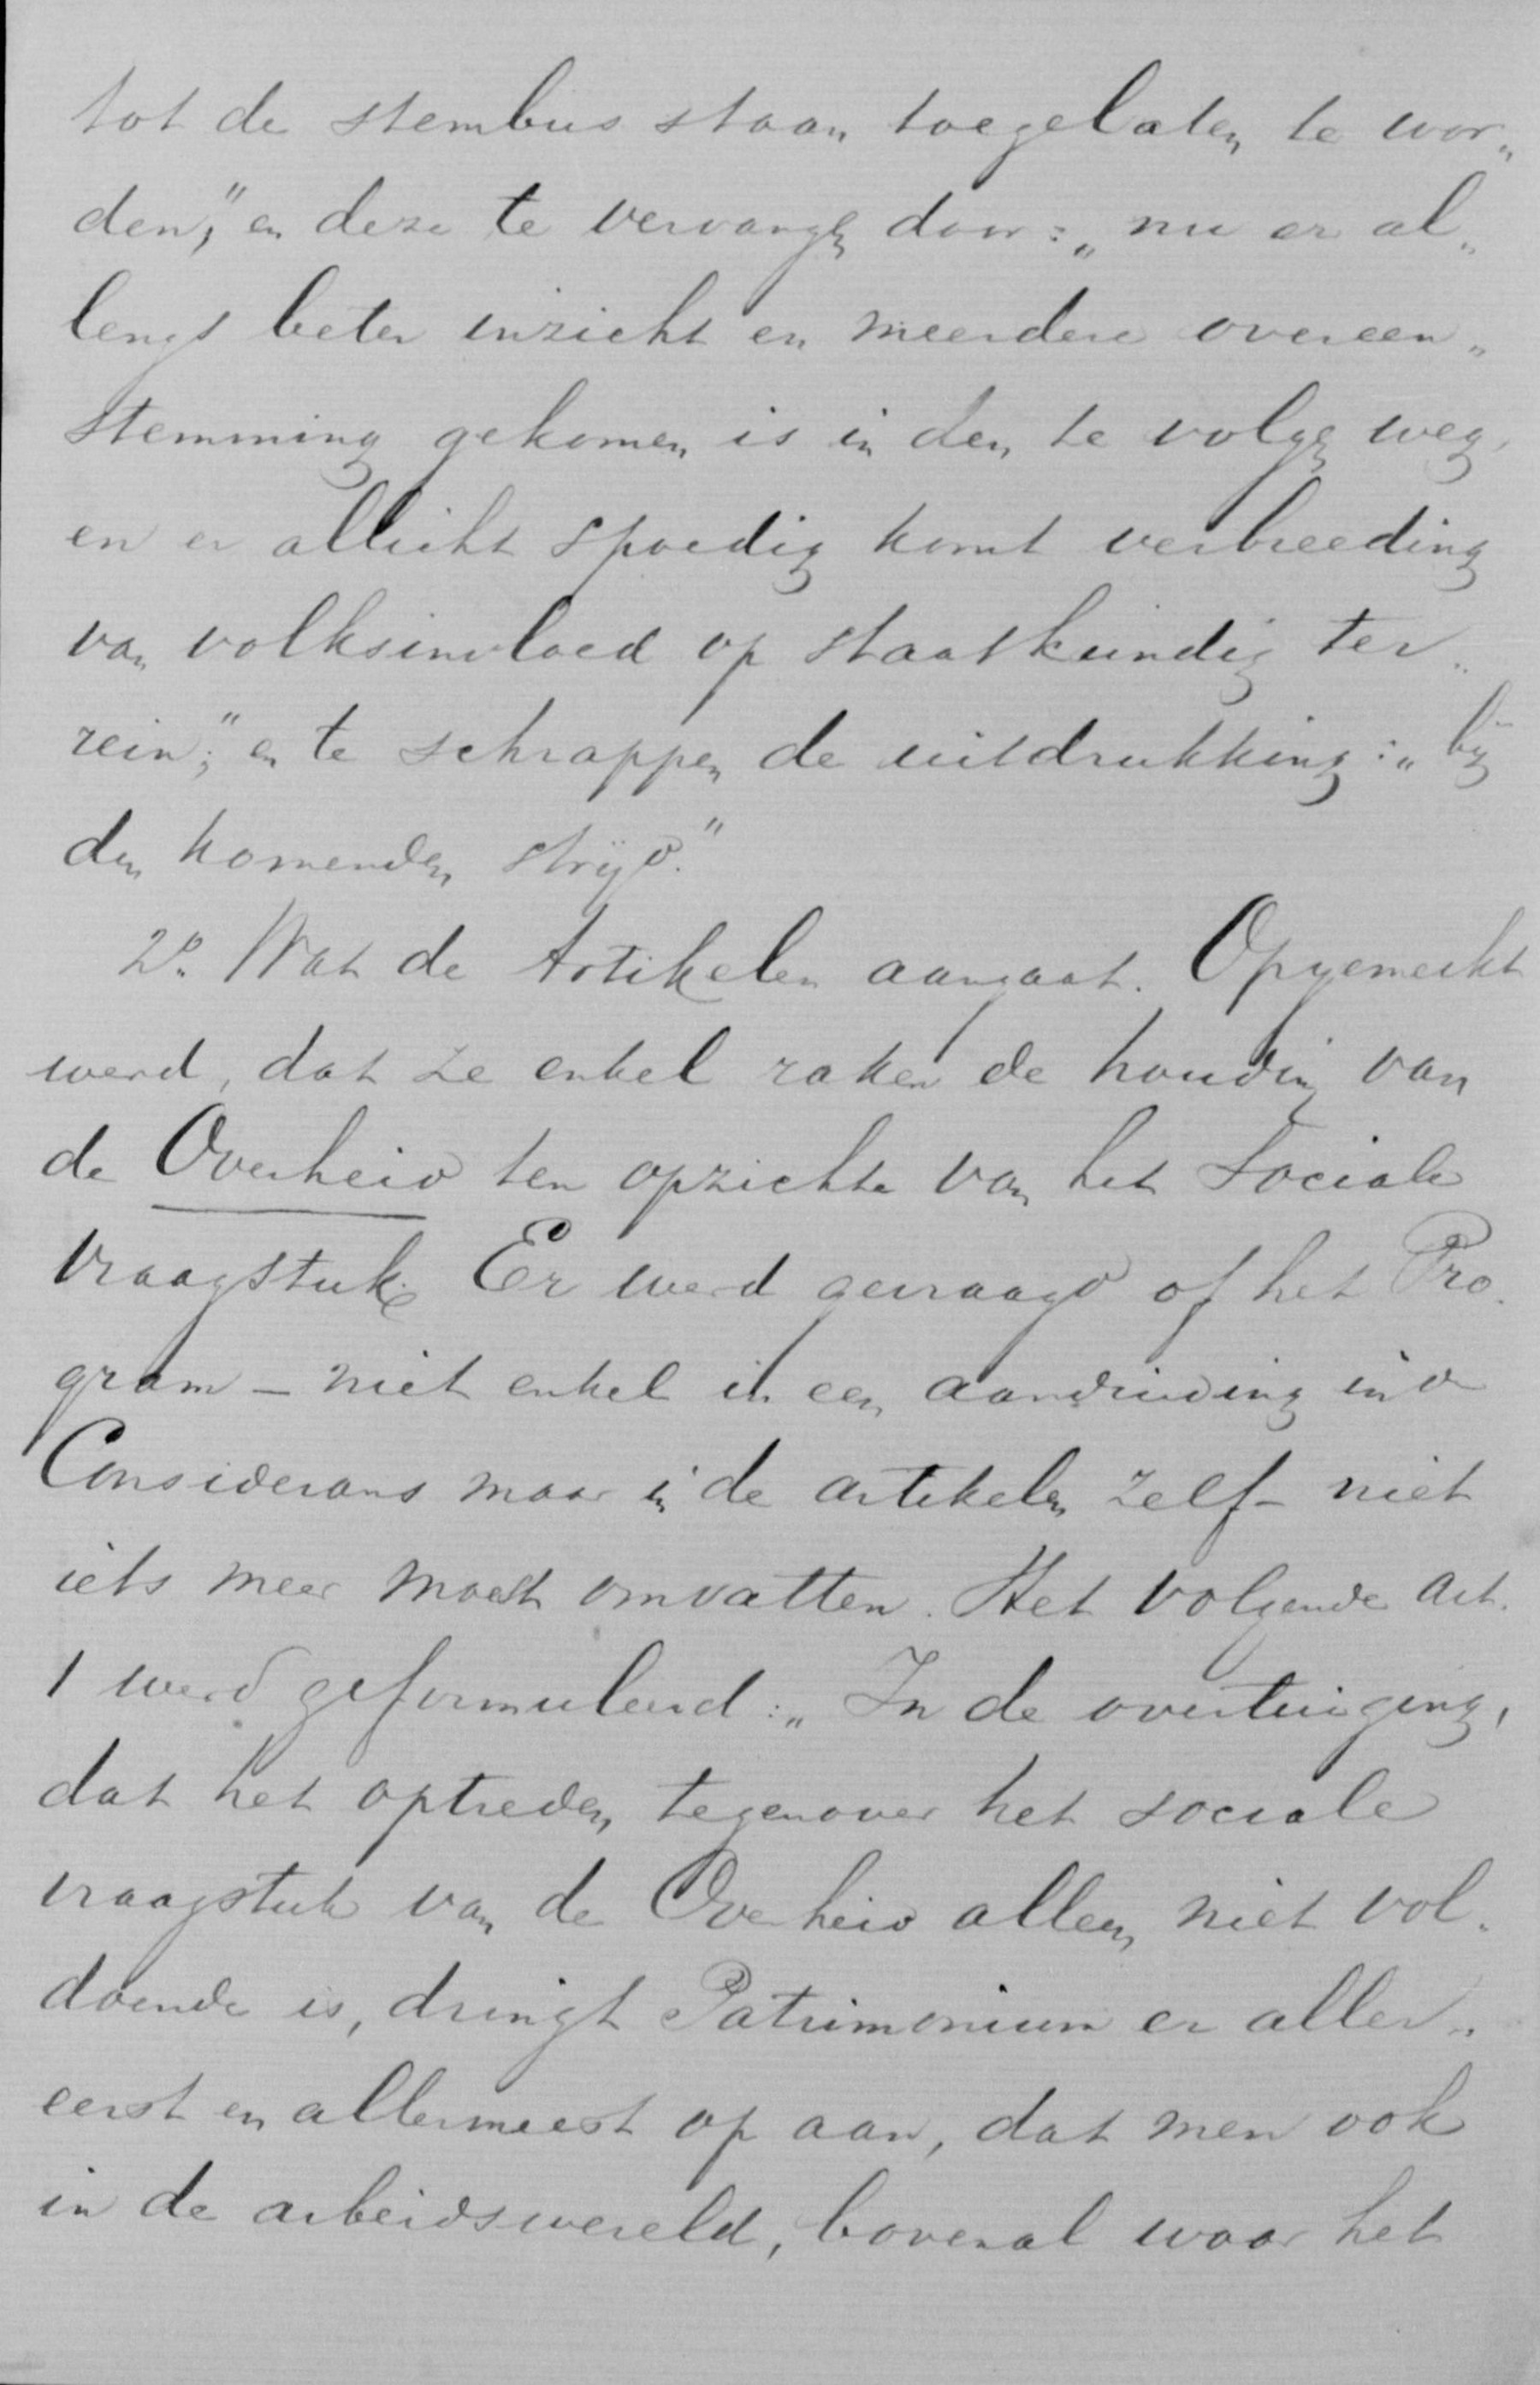 tot de stembus staan toegelaten te wor„
den," en deze te vervangen door: „nu er al„
lengs beter inzicht en meerdere overeen„
stemming gekomen is in den te volgen weg,
en er allicht spoedig komt verbreeding
van volksinvloed op staatkundig ter„
rein;" en te schrappen de uitdrukking: „bij
den komenden strijd."
2o. Wat de Artikelen aangaat. Opgemerkt
werd, dat ze enkel raken de houding van
de Overheid ten opzichte van het Sociale
Vraagstuk. Er werd gevraagd of het Pro„
gram – niet enkel in een aanduiding in de
Considerans maar in de artikelen zelf – niet
iets meer moest omvatten. Het volgende Art.
1 werd geformuleerd: „In de overtuiging,
dat het optreden tegenover het sociale
vraagstuk van de Overheid alleen niet vol„
doende is, dringt Patrimonium er aller„
eerst en allermeest op aan, dat men ook
in de arbeidswereld, bovenal waar het